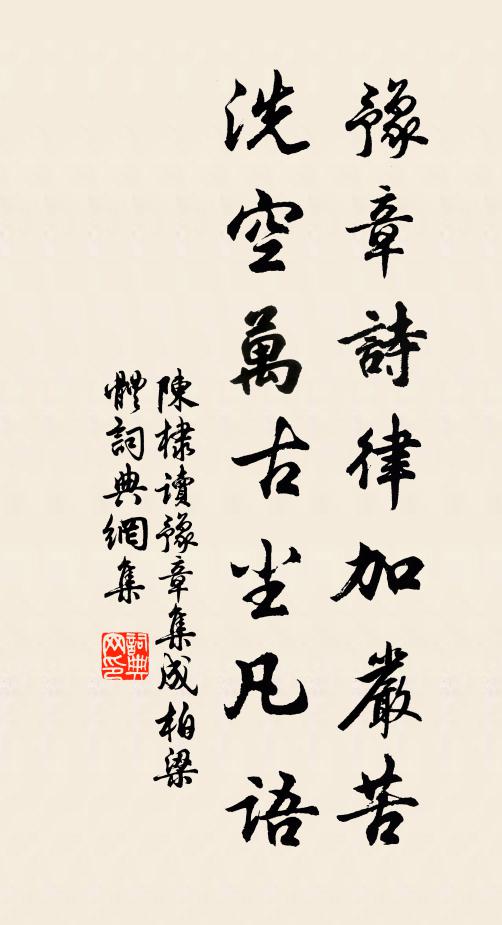 豫章詩律加嚴苦
洗空萬古尘凡语
陳棣读豫章集成柏梁
體詞典網集
詞典网印